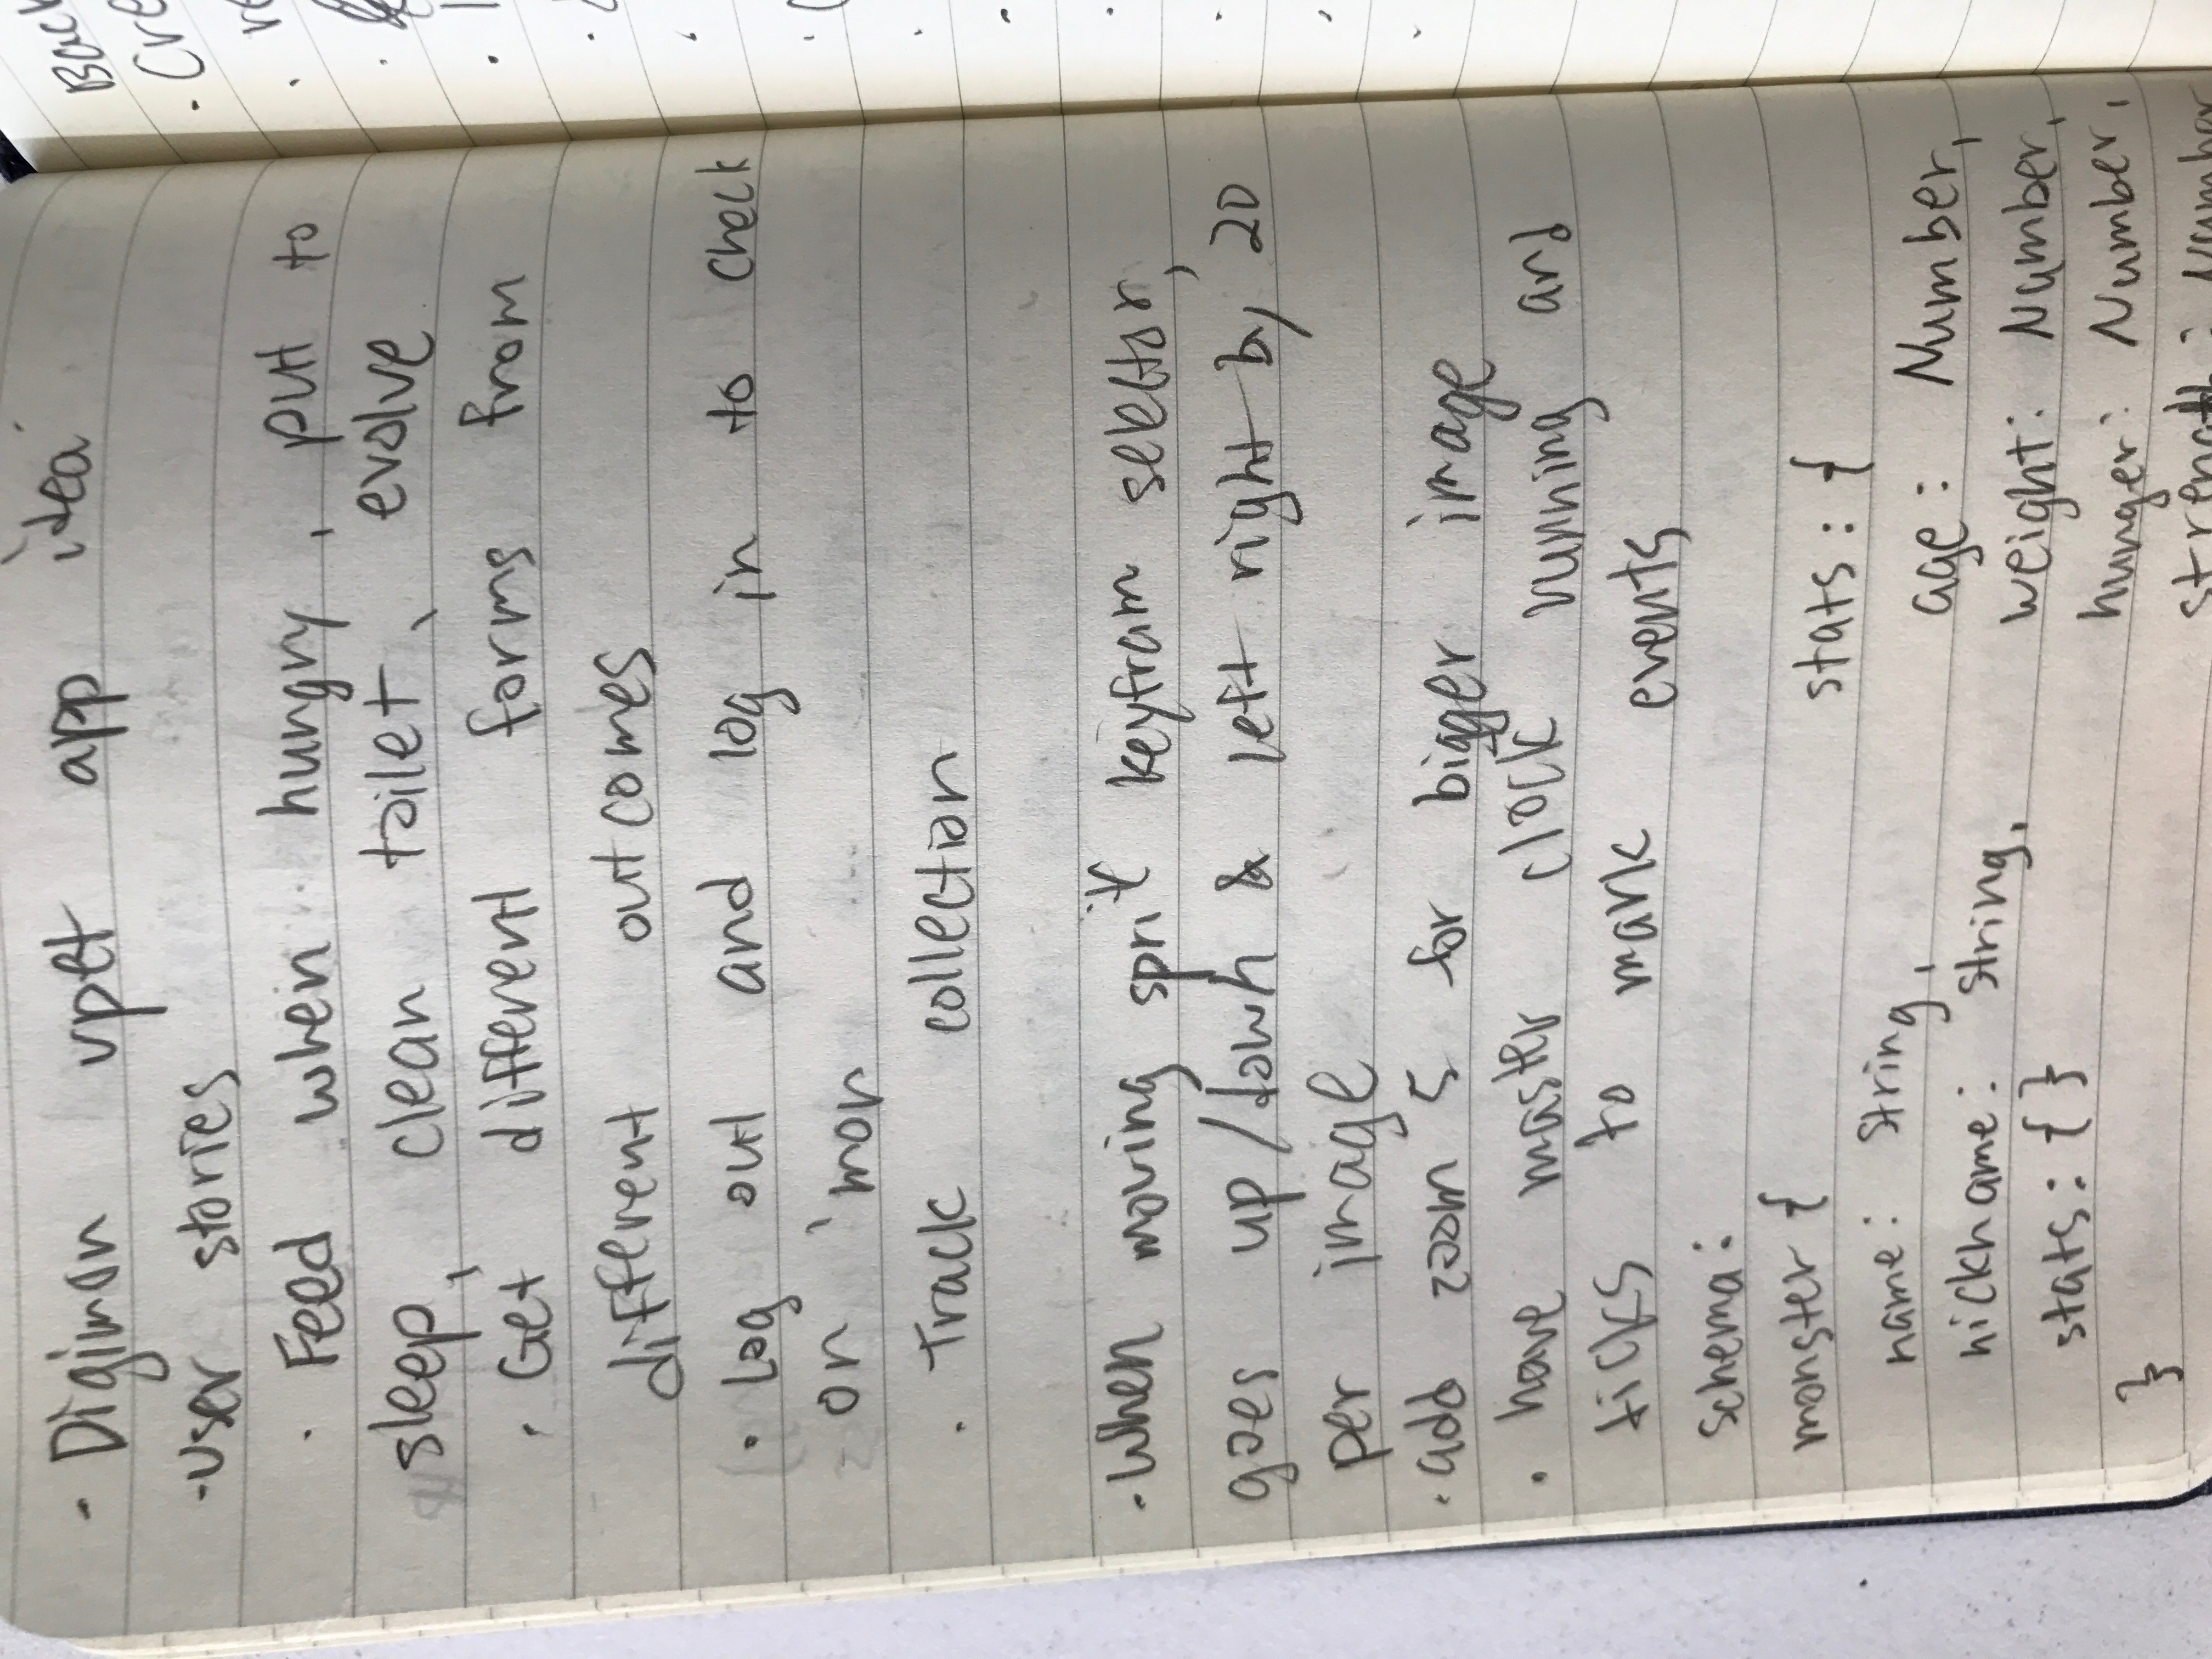 - Digimon vpet app idea
- User stories
· Feed when hungry, put to
sleep, clean toilet, evolve
· Get different forms from
different outcomes
· Log out and log in to check
on 'mon
· Track collection
- When moving sprite keyfram selector,
goes up/down & left right by 20
per image
· add zoom 5 for bigger image
· have master clock running and
ticks to mark events
schema:
monster {
name: String,
nickname: String,
stats: { }
}
stats: {
age: Number,
weight: Number,
hunger: Number,
strength: Number
Back
· Cre
re